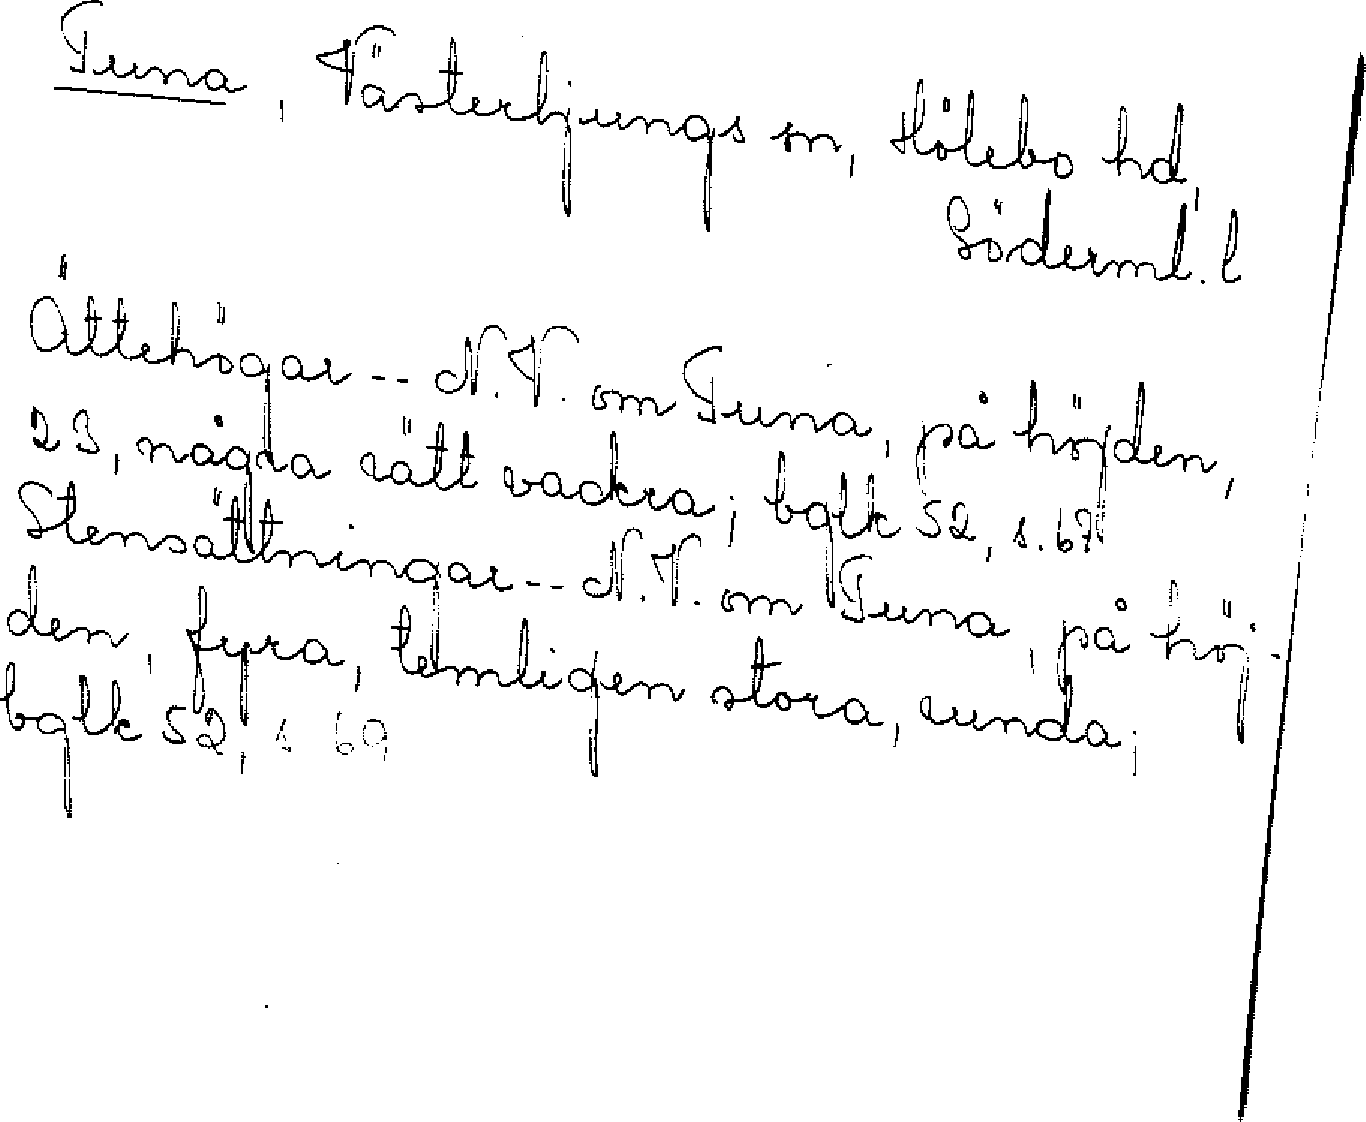 Tuna, Västerljungs sn, Hölebo hd,
Söderml. l
Ättehögar -- N.V. om Tuna, på höjden,
23, några rätt vackra; bglk 52, s. 67.
Stensättningar -- N.V. om Tuna, på höj-
den, fyra, temligen stora, runda;
bglk 52, s 69